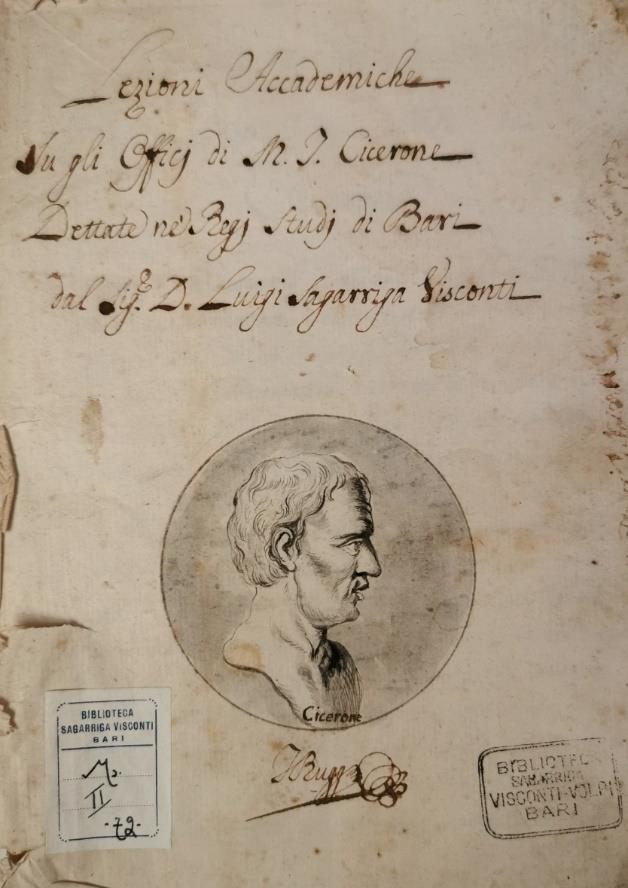 Lezioni Accademiche
Su gli Officj di M. T. Cicerone
Dettate ne' Regj Studj di Bari
dal Sig.e D. Luigi Sagarriga Visconti
Cicerone
BIBLIOTECA
SAGARRIGA VISCONTI
BARI
Ms.
II
-72-
BIBLIOTECA
SAGARRIGA
VISCONTI-VOLPI
BARI